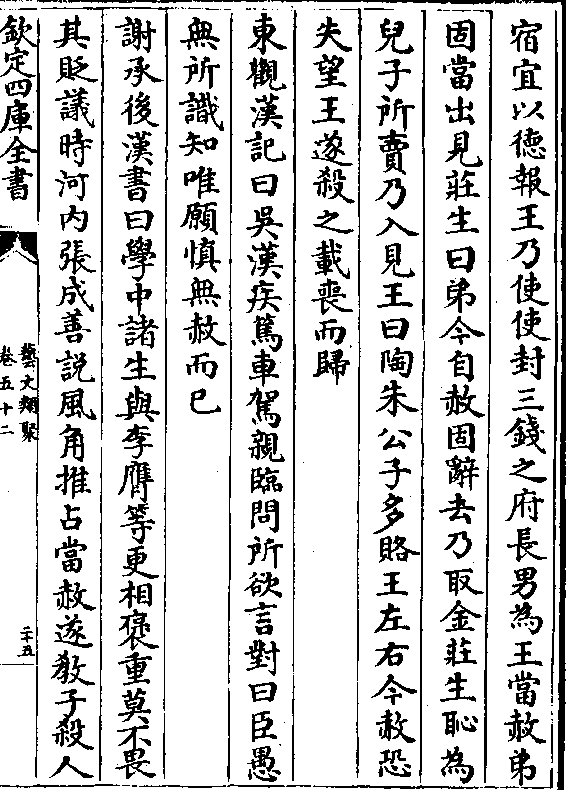 宿宜以德報王乃使使封三錢之府長男為王當赦弟
固當出見莊生曰弟今自赦固辭去乃取金莊生恥為
兒子所賣乃入見王曰陶朱公子多賂王左右今赦恐
失望王遂殺之載喪而歸
東觀漢記曰吳漢疾篤車駕親臨問所欲言對曰臣愚
無所識知唯願慎無赦而已
謝承後漢書曰學中諸生與李膺等更相褒重莫不畏
其貶議時河內張成善説風角推占當赦遂敎子殺人
欽定四庫全書
藝文類聚
卷五十二
二十五